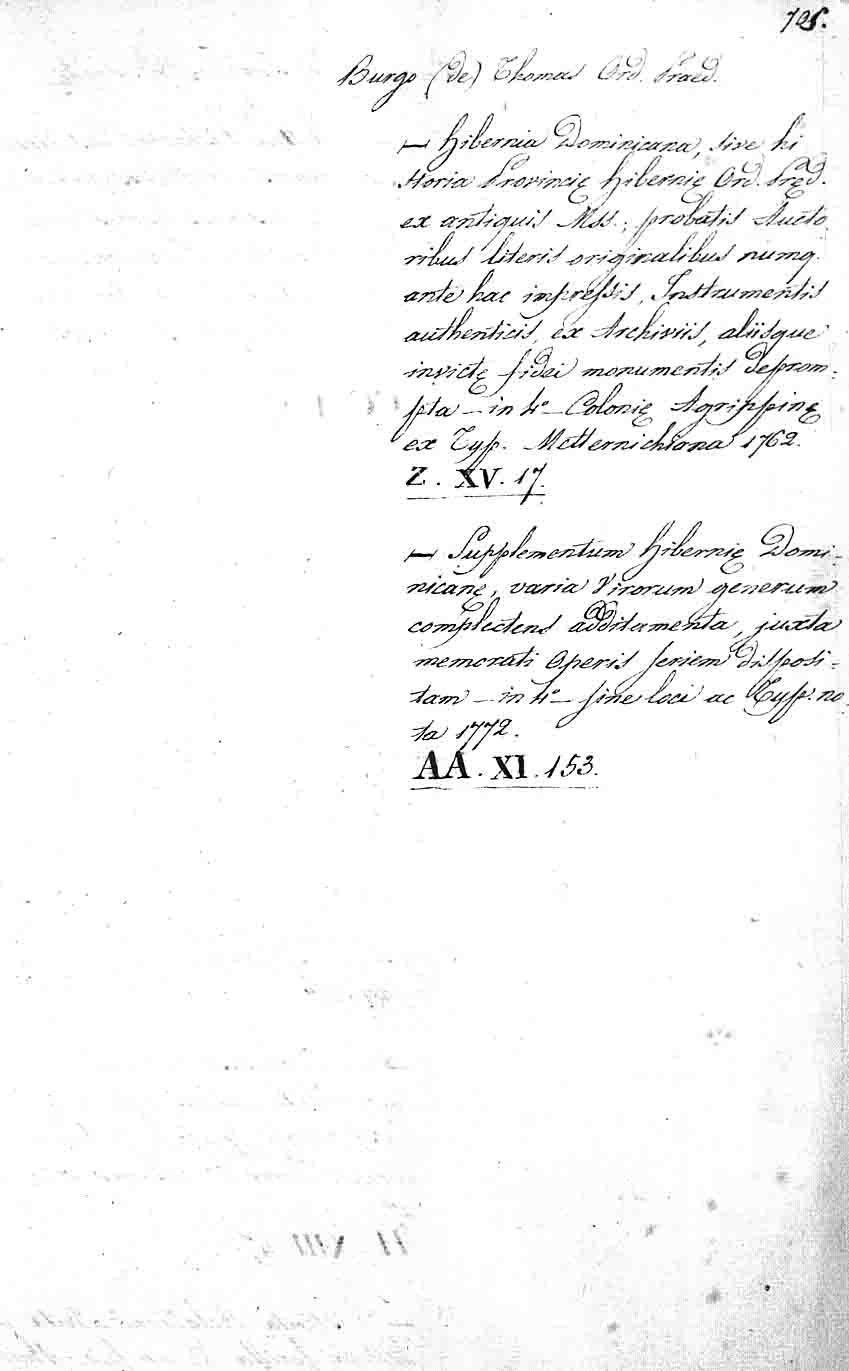 705.
Burgo (de) Thomas Ord. Praed.
— Hibernia Dominicana, sive hi
storia Provincię Hibernię Ord. Pręd.
ex antiquis Mss., probatis Aucto
ribus literis originalibus numq.
ante hac impressis, Instrumentis
authenticis, ex Archiviis, aliisque
invictę fidei monumentis deprom-
pta — in 4º — Colonię Agrippinę
ex Typ. Metternichiana 1762.
Z. XV. 17.
— Supplementum Hibernię Domi-
nicanę, varia Virorum generum
complectens additamenta, juxta
memorati Operis seriem disposi-
tam — in 4º — sine loci ac Typ. no-
ta 1772.
AA. XI. 153.